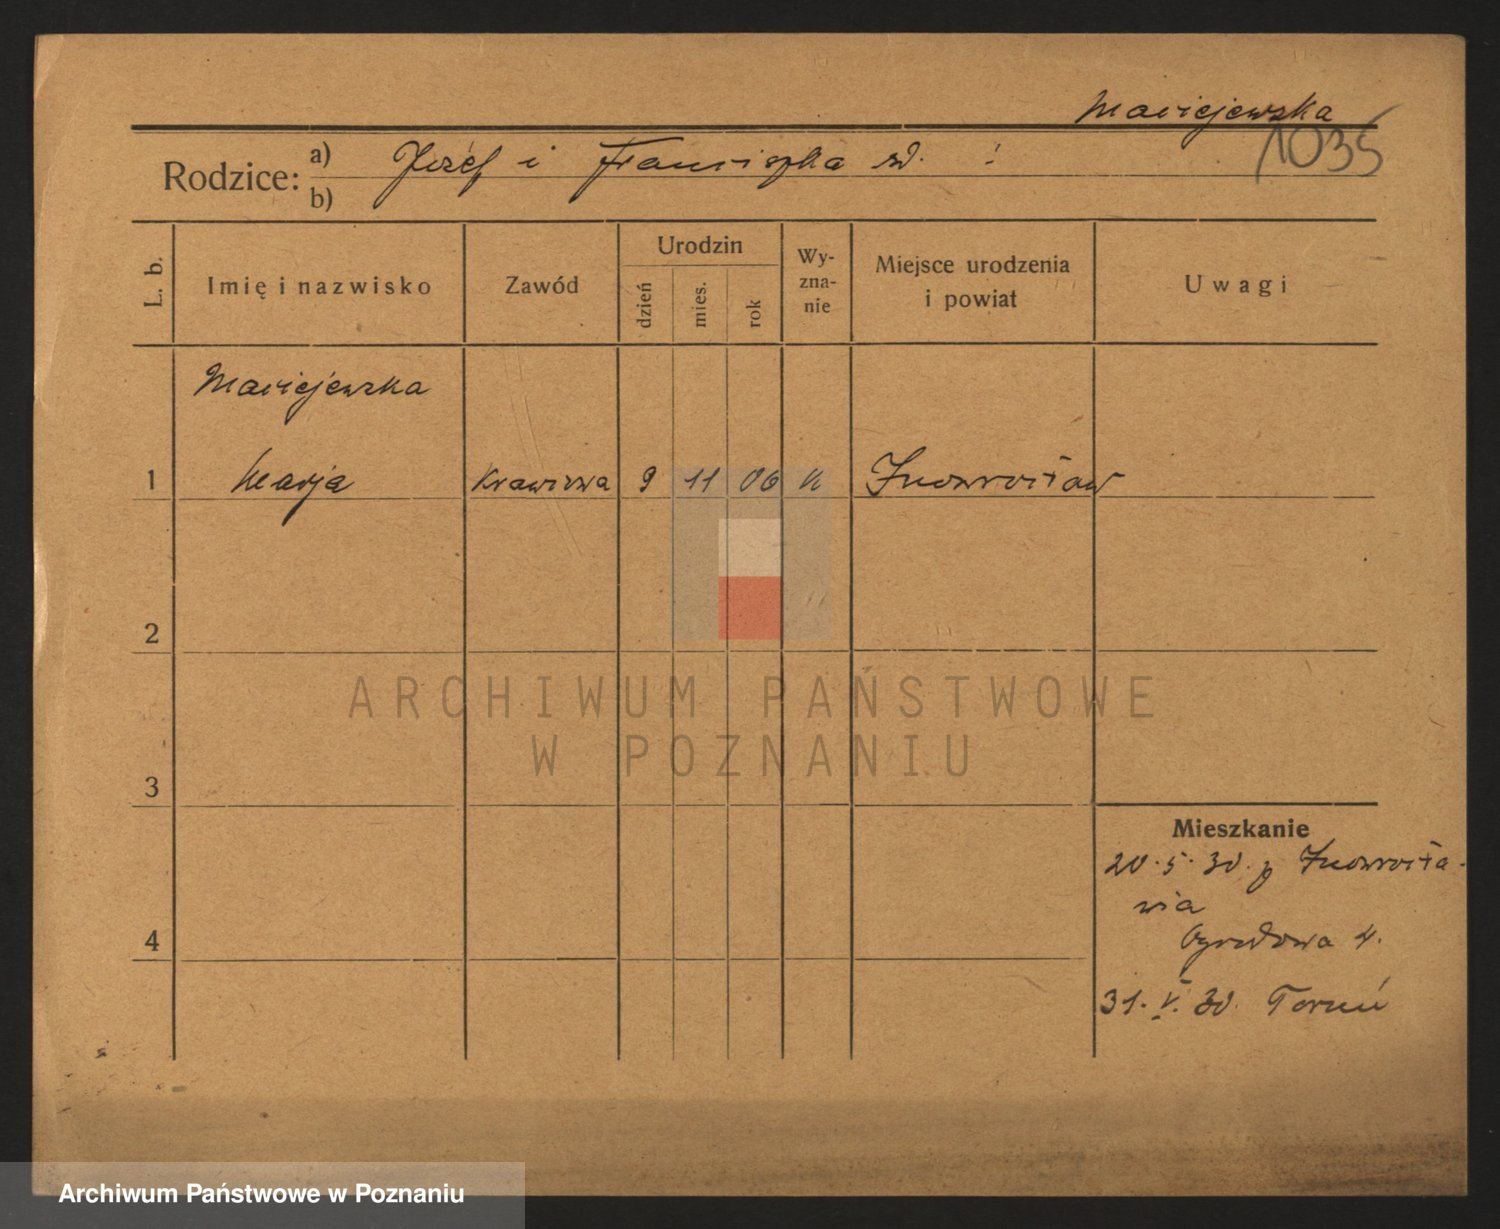 Maciejewska
1035
Rodzice: a) Józef i Franciszka
b)
L. b.
Imię i nazwisko
Zawód
Urodzin
dzień
mies.
rok
Wy-
zna-
nie
Miejsce urodzenia
i powiat
Uwagi
Maciejewska
1 Marja Krawcowa 9 11 06 k Inowrocław
2
ARCHIWUM PAŃSTWOWE
W POZNANIU
3
Mieszkanie
20.5.30. z Inowrocła-
wia
4
Ogrodowa 4.
31. V. 30. Toruń
Archiwum Państwowe w Poznaniu